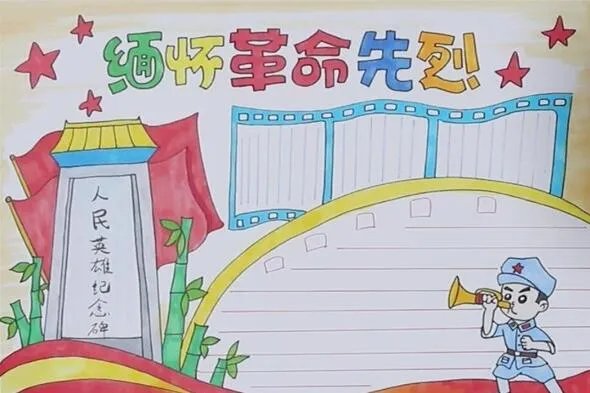 缅怀革命先烈
人民英雄纪念碑